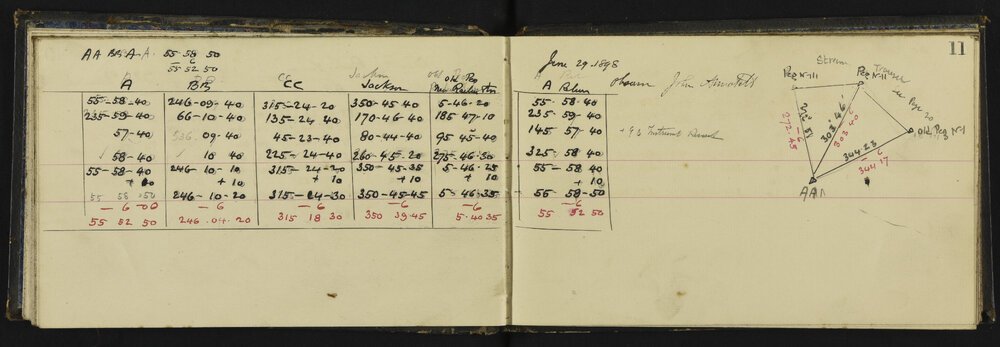 AA BB A A. 55 58 50
6
55 52 50
A BB CC Jackson old Peg
A BB CC Jackson old Peg
55-58-40 246-09-40 315-24-20 350-45-40 5-46-20
235-59-40 66-10-40 135-24 40 170-46 40 185 47-10
57-40 09-40 45-23-40 80-44-40 95 45-40
58-40 10 40 225-24-40 260-45-20 275-46 30
55-58-40 246-10-10 315-24-20 350-45-35 5-46-25
+10 +10 + 10 +10 +10
55 58 50 246-10-20 315-24-30 350-45-45 5-46-35
- 6 -00 - 6 - 6 - 6 - 6
55 52 50 246.04.20 315 18 30 350 39.45 5.40 35
June 29. 1898
A
A
55 58-40
235-59-40
145 57-40
325-58 40
55-58 40
+ 10
55 58-50
- 6
55 52 50
11
Stream
Peg N-III
Peg N-II
Traverse
see Page 20
old Peg N-I
272-45
303° 46'
- 6
303 40
344-23
- 6
344.17
AA